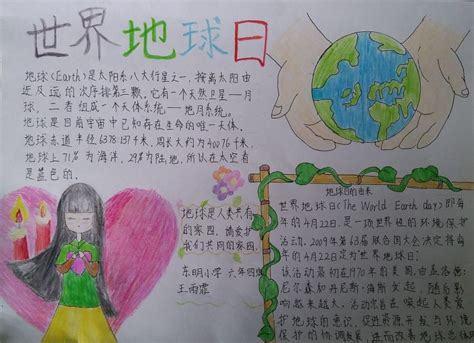 世界地球日
地球(Earth)是太阳系八大行星之一,按离太阳由
近及远的次序排第三颗,它有一个天然卫星——月
球,二者组成一个天体系统——地月系统。
地球是目前宇宙中已知存在生命的唯一天体。
地球赤道半径6378.137千米,周长大约为40076千米,
地球上71%为海洋,29%为陆地,所以在太空看
是蓝色的。
地球是人类共有
的家园,请爱护
我们共同的家园。
东明小学 六年四班
王雨霏
地球日的由来
世界地球日(The World Earth day)即每
年的4月22日,是一项世界性的环境保护
活动。2009年第63届联合国大会决定将每
年的4月22日定为世界地球日。
该活动最初在1970年的美国,由盖洛德·
尼尔森和丹尼斯·海斯发起,随后影
响越来越大。活动宗旨在唤起人类爱
护地球的意识,促进资源开发与环境
保护的协调发展,进而改善地球总体环